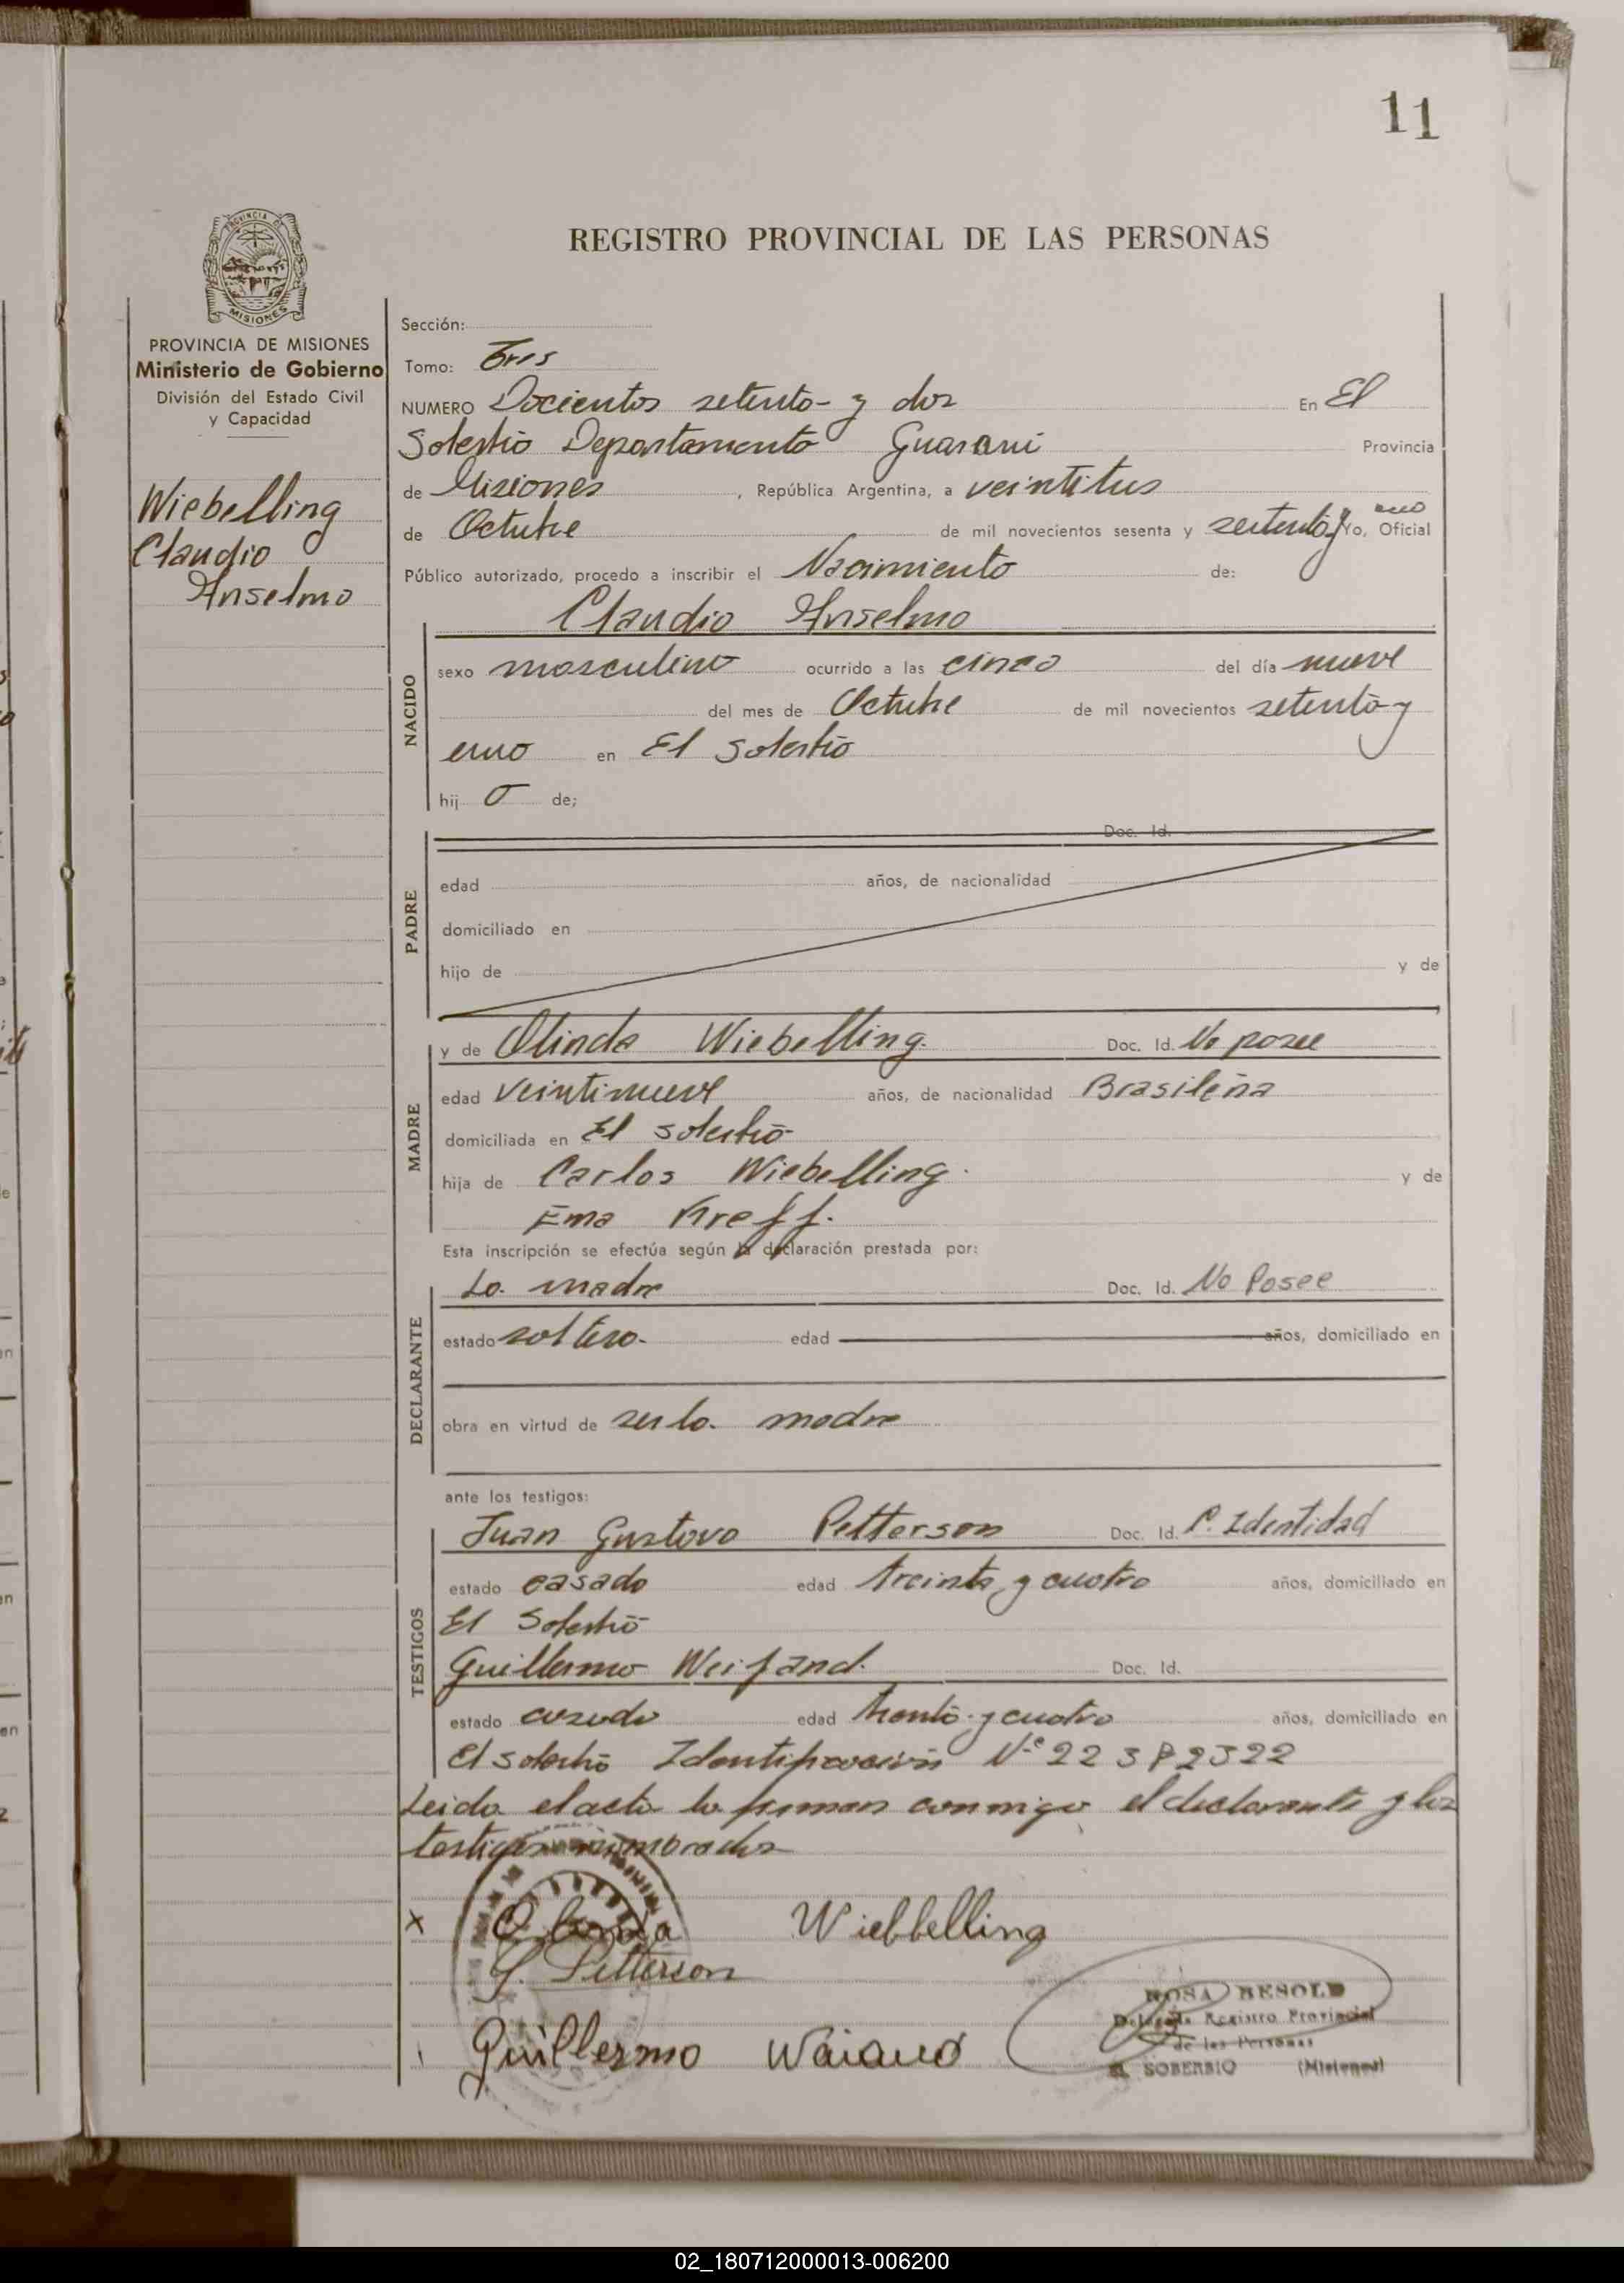 11
REGISTRO PROVINCIAL DE LAS PERSONAS
PROVINCIA DE MISIONES
Ministerio de Gobierno
División del Estado Civil
y Capacidad
Wiebelling
Claudio
Anselmo
Sección:
Tomo: Tres
NUMERO Docientos setenta y dos En El
Soberbio Departamento Guarani Provincia
de Misiones, República Argentina, a veintitres
de Octubre de mil novecientos sesenta y setenta y uno Yo, Oficial
Público autorizado, procedo a inscribir el Nacimiento de:
Claudio Anselmo
NACIDO
sexo masculino ocurrido a las cinco del día nueve
del mes de Octubre de mil novecientos setenta y
uno en El Soberbio
hij o de;
PADRE
Doc. Id.
edad años, de nacionalidad
domiciliado en
hijo de y de
MADRE
y de Olinda Wiebelling. Doc. Id. No posee
edad veintinueve años, de nacionalidad Brasileña
domiciliada en El Soberbio
hija de Carlos Wiebelling. y de
Ema Kreff.
Esta inscripción se efectúa según la declaración prestada por:
DECLARANTE
La madre Doc. Id. No Posee
estado soltera. edad años, domiciliado en
obra en virtud de ser la madre
ante los testigos:
TESTIGOS
Juan Gustavo Petterson Doc. Id. C. Identidad
estado casado edad treinta y cuatro años, domiciliado en
El Soberbio
Guillermo Weifand. Doc. Id.
estado casado edad treinta y cuatro años, domiciliado en
El soberbio Identificación Nº
Leida el acta la firman conmigo el declarante y los
testigos nombrados
x Olinda Wiebbelling
Petterson
Guillermo
ROSA BESOLD
Delegada Registro Provincial
de las Personas
EL SOBERBIO (Misiones)
02_180712000013-006200